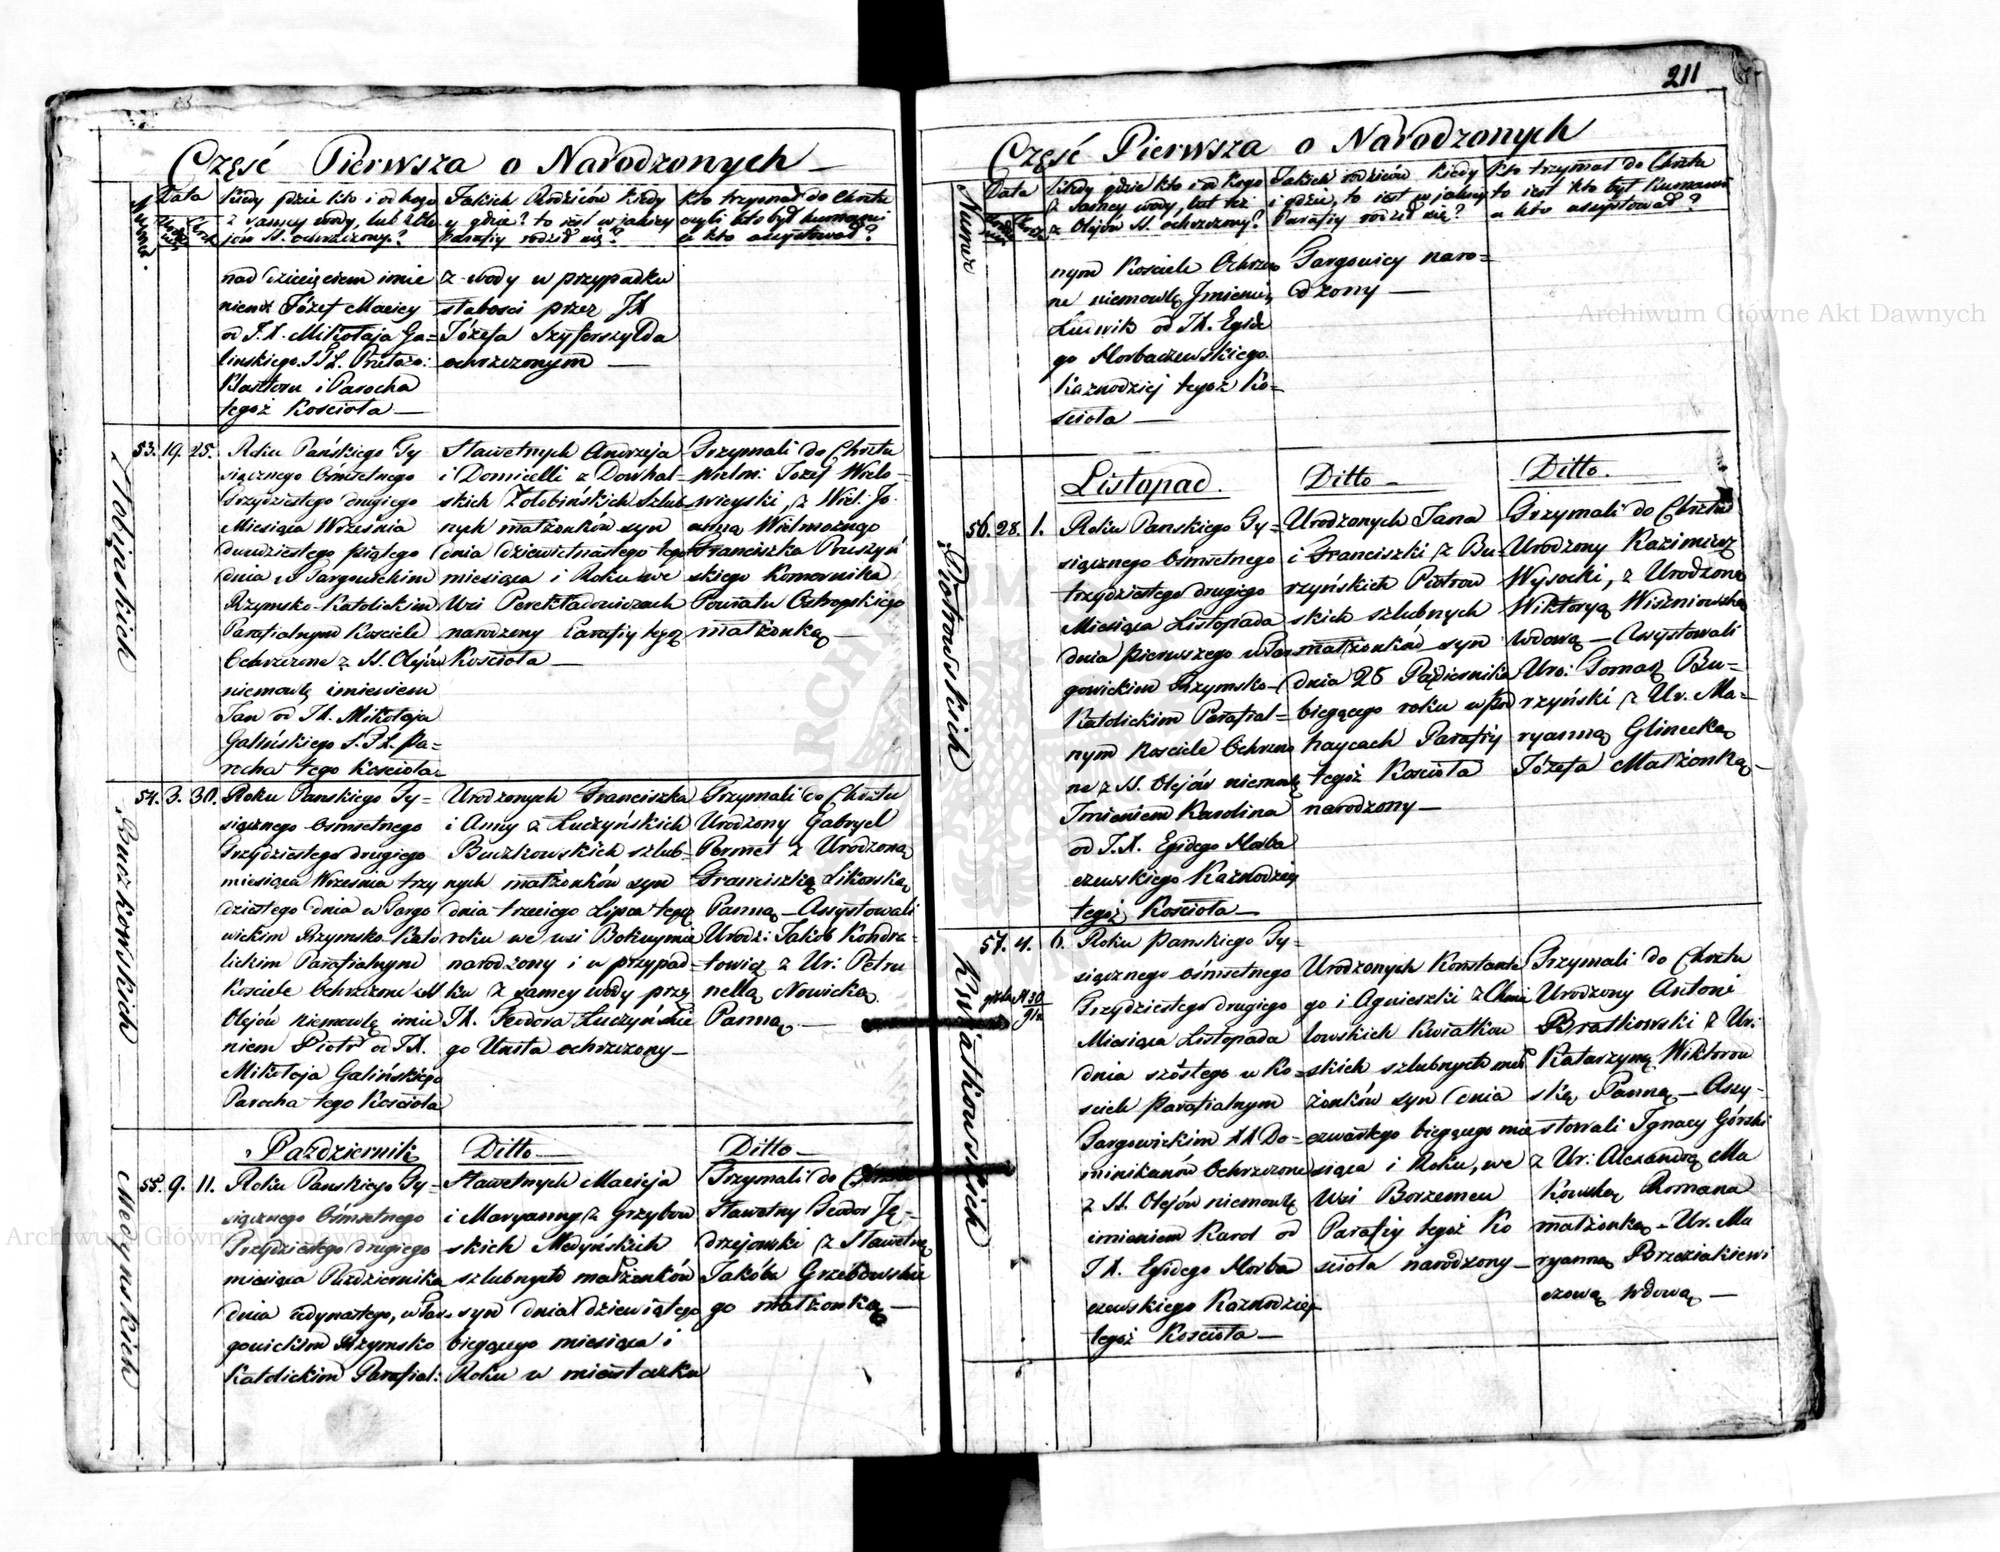 211
Część Pierwsza o Narodzonych
Numer
Data
Kiedy gdzie kto i od kogo
z samey wody, lub z Ole
jów SS. ochrzczony?
Jakich Rodziców kiedy
y gdzie? to iest w jakiey
Parafiy rodził się?
Kto trzymał do Chrztu
czyli kto był kumami
a kto assystował?
nad dziecięciem imie
niem Józef Maciey
od J.X. Mikołaja Ga=
lińskiego
Klasztoru i Parocha
tegoż Kościoła —
z wody w przypadku
słabości przez JX
Józefa Szyferszylda
ochrzczonym —
53. 19. 25.
Roku Pańskiego Ty
siącznego Ośmsetnego
Trzydziestego drugiego
Miesiąca Września
dwudziestego piątego
dnia w Targowickim
Rzymsko-Katolickim
Parafialnym Kościele
Ochrzczone z SS. Olejów
niemowlę imieniem
Jan od JX. Mikołaja
Galińskiego S.T.L. Pa=
rocha tego Kościoła
Sławetnych Andrzeja
i Domicelli z Dowhal=
skich Żłobińskich szlub
nych małżonków syn
dnia dziewiętnastego tego
miesiąca i Roku we
Wsi Perekładowiczach
narodzony Parafiy tegoż
Kościoła —
Trzymali do Chrztu
Wielm: Józef Wielo=
wieyski, z Wiel: Jo=
anną Wielmożnego
Franciszka Pruszyń
skiego Komornika
Powiatu Ostrogskiego
małżonką —
54. 3. 30.
Buczkowskich
Roku Pańskiego Ty=
siącznego Ośmsetnego
Trzydziestego drugiego
miesiąca Września trzy
dziestego dnia w Targo
wickim Rzymsko-Kato
lickim Parafialnym
Kościele Ochrzczone z SS
Olejów niemowlę imie
niem Piotr od JX.
Mikołaja Galińskiego
Parocha tego Kościoła
Urodzonych Franciszka
i Anny z Łuczyńskich
Buczkowskich szlub=
nych małżonków syn
dnia trzeciego Lipca tegoż
roku we wsi Bokuymie
narodzony i w przypad=
ku z samey wody przez
JX. Teodora Łuczyńskie
go Unita ochrzczony —
Trzymali do Chrztu
Urodzony Gabryel
Permet z Urodzoną
Franciszką Likowską
Panną — Assystowali
Urodz: Jakób Kondra=
towicz z Ur: Petru
nellą Nowicką
Panną —
Październik
Ditto —
Ditto —
55. 9. 11.
Medyńskich
Roku Pańskiego Ty=
siącznego Ośmsetnego
Trzydziestego drugiego
miesiąca Października
dnia iedynastego, w Tar=
gowickim Rzymsko
Katolickim Parafial:
Sławetnych Macieja
i Maryanny z Grzybow
skich Medyńskich
szlubnych małżonków
syn dnia dziewiątego
bieżącego miesiąca i
Roku w miasteczku
Trzymali do Chrztu
Sławetny Teodor Ję=
drzejowski z Sławetną
Jakóba Grzebowskie
go małżonką —
Część Pierwsza o Narodzonych
Numer
Data
Kiedy gdzie kto i od kogo
z samey wody, lub też
z Olejów SS. ochrzczony?
Jakich rodziców kiedy
i gdzie, to iest w jakiey
Parafiy rodził się?
Kto trzymał do Chrztu
to iest kto był Kumami
a kto assystował?
nym Kościele Ochrzczo
ne niemowlę Imieniem
Ludwik od JX. Egide
go Horbaczewskiego
Kaznodziej tegoż Ko=
ścioła —
Targowicy naro=
dzony —
Listopad.
Ditto —
Ditto.
56. 28. 1.
Piotrowskich
Roku Pańskiego Ty=
siącznego Ośmsetnego
trzydziestego drugiego
Miesiąca Listopada
dnia pierwszego w Tar
gowickim Rzymsko=
Katolickim Parafial=
nym Kościele Ochrzczo
ne z SS. Olejów niemowlę
Imieniem Karolina
od J.X. Egidego Horba
czewskiego Kaznodziej
tegoż Kościoła —
Urodzonych Jana
i Franciszki z Bu=
rzyńskich Piotrow
skich szlubnych
małżonków syn
dnia 28 Października
bieżącego roku w
haycach Parafiy
tegoż Kościoła
narodzony —
Trzymali do Chrztu
Urodzony Kazimierz
Wysocki, z Urodzoną
Wiktoryą Wiszniowską
wdową — Assystowali
Uro: Tomasz Bu=
rzyński z Ur. Ma=
ryanną Glinecką
Józefa Małżonką —
57. 4. 6.
Kwiatkowskich
Roku Pańskiego Ty=
siącznego ośmsetnego
Trzydziestego drugiego
Miesiąca Listopada
dnia szóstego w Ko=
ściele Parafialnym
Targowickim XX Do=
minikanów Ochrzczone
z SS. Olejów niemowlę
imieniem Karol od
JX. Egidego Horba
czewskiego Kaznodziej
tegoż Kościoła —
Urodzonych Konstante
go i Agnieszki z Chmie
lowskich Kwiatkow
skich szlubnych mał
żonków syn dnia
czwartego bieżącego mie
siąca i Roku, we
Wsi Borzemcu
Parafiy tegoż Ko
ścioła narodzony —
Trzymali do Chrztu
Urodzony Antoni
Bratkowski z Ur:
Katarzyną Wiktorow
ską Panną — Assy=
stowali Ignacy Górski
z Ur: Alexandrą Ma
kowską Romana
małżonką — Ur. Ma
ryanną Brzeziakiewi
czową wdową —
Archiwum Główne Akt Dawnych
Archiwum Główne Akt Dawnych